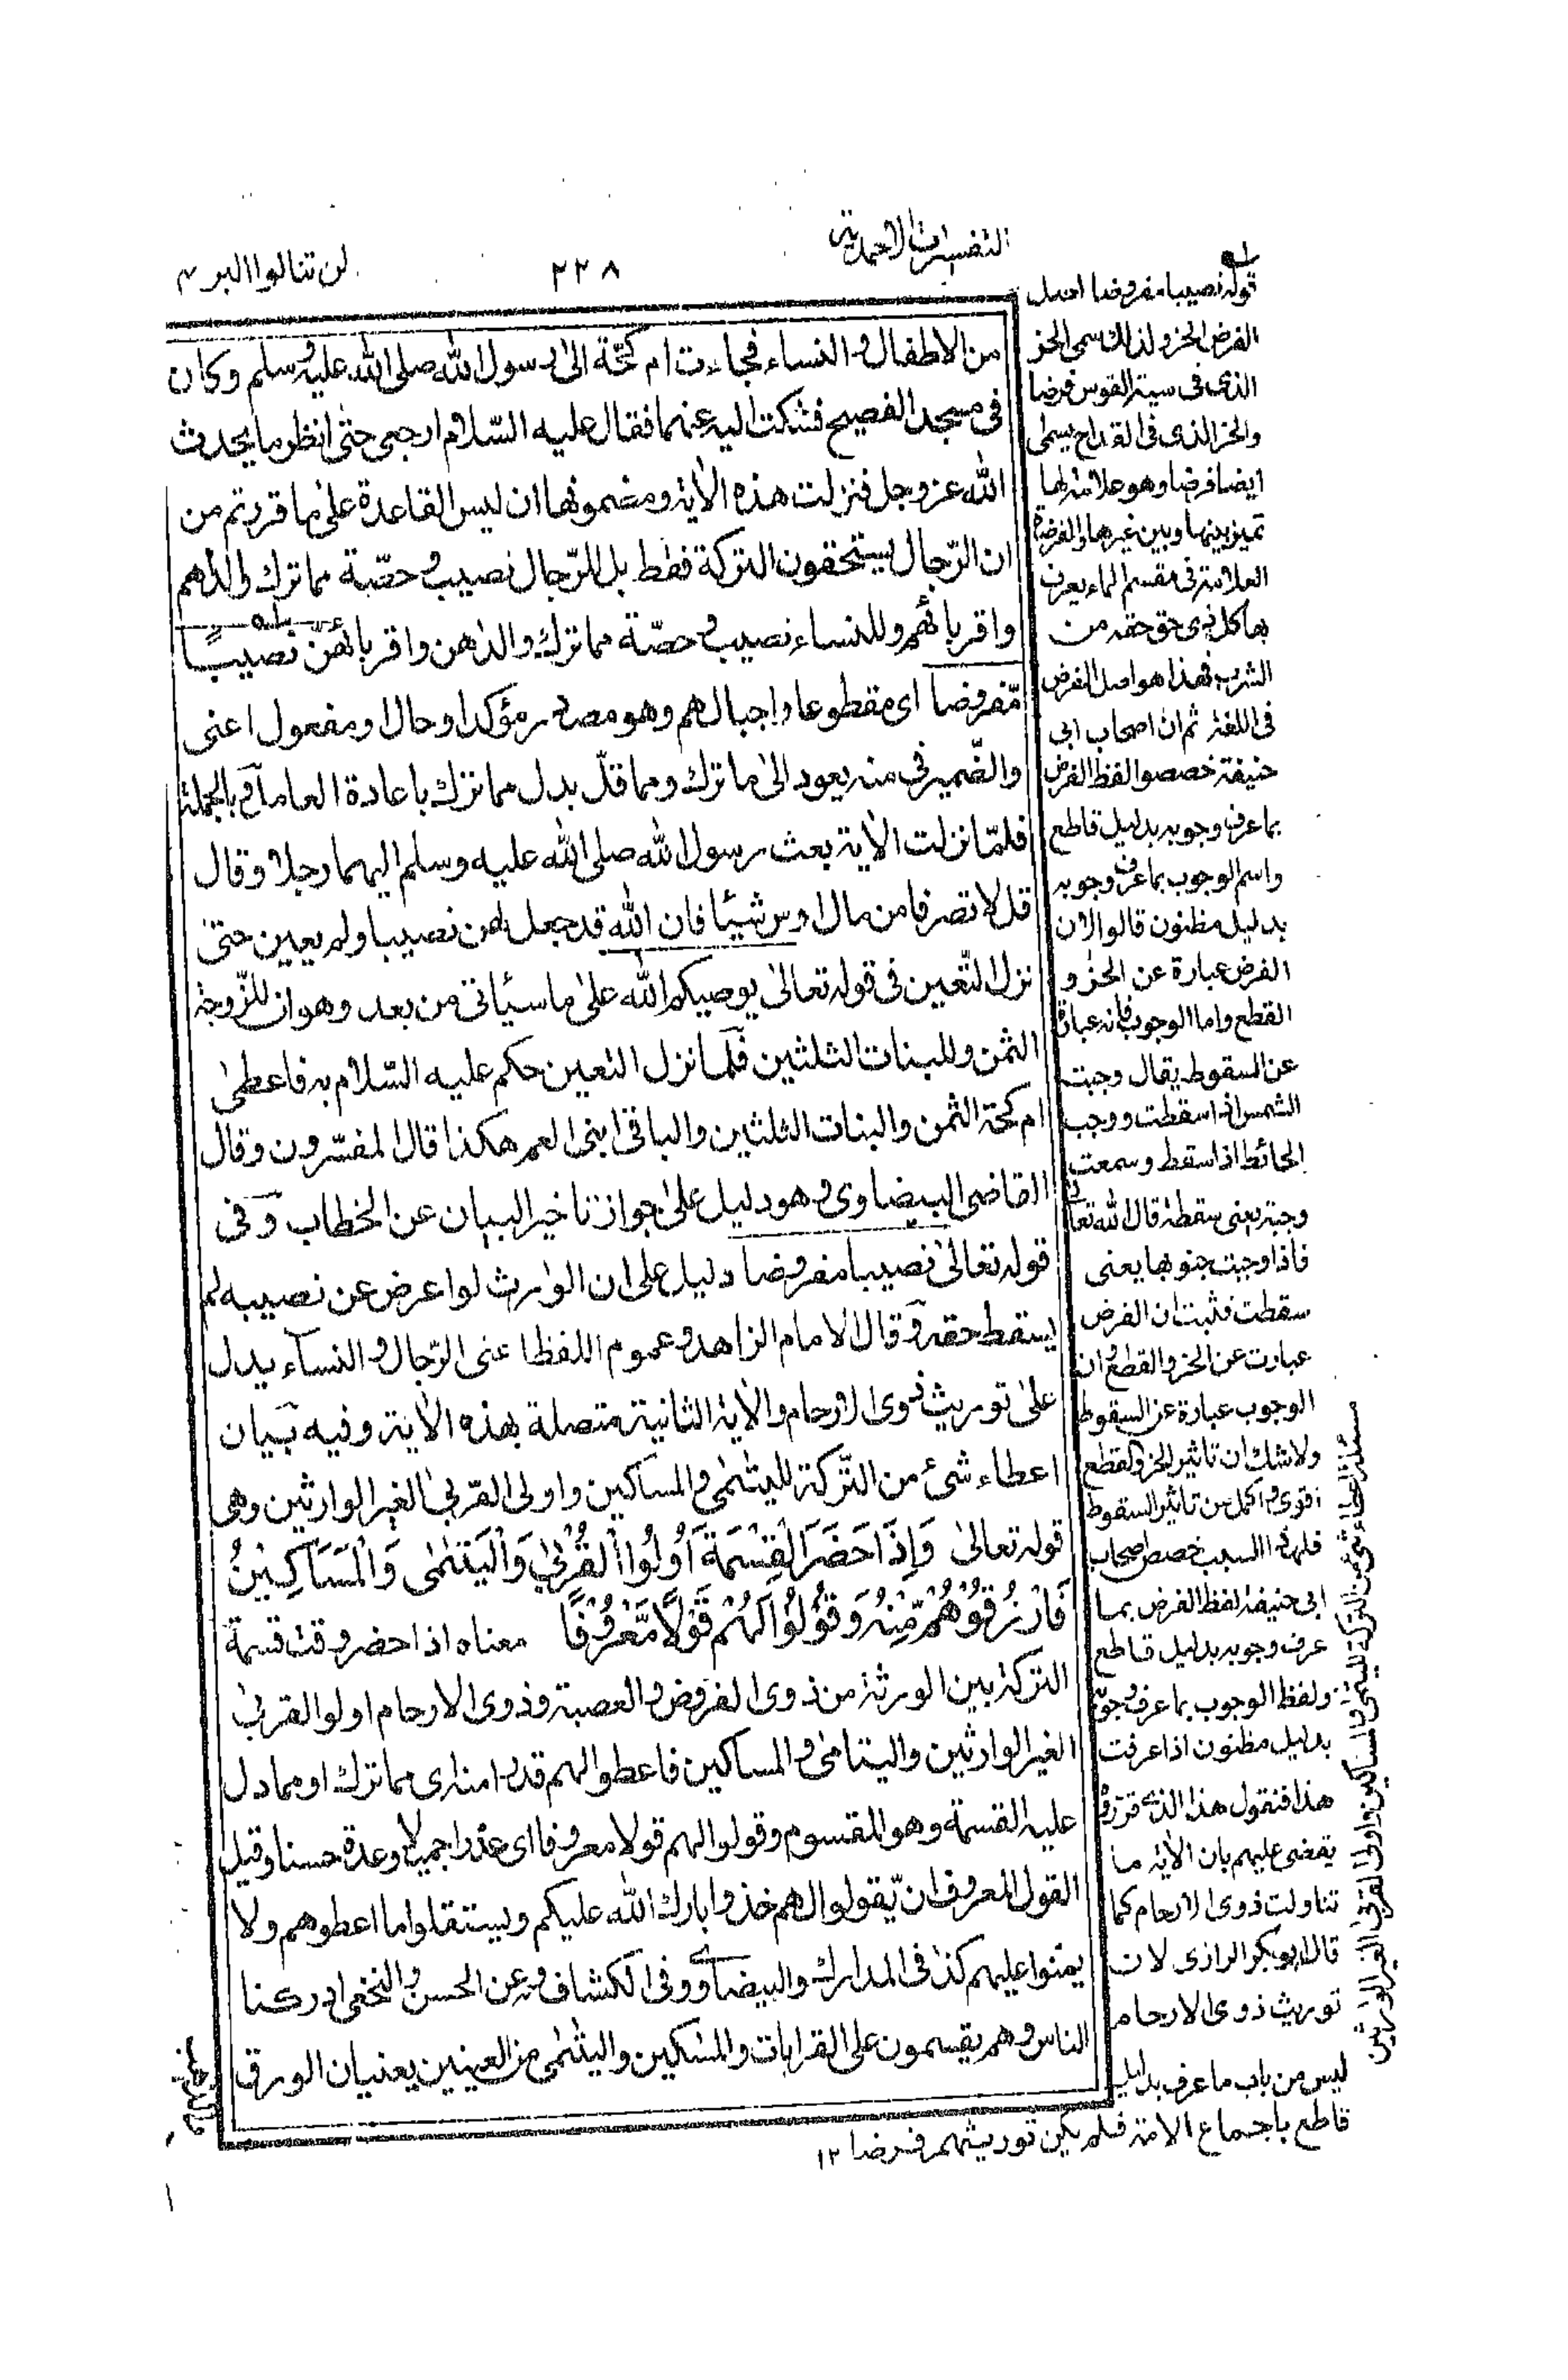 التفسيرات الاحمدية
٢٢٨
لن تنالوا البر ٤
من الاطفال والنساء فجاءت ام كحّة الى رسول الله صلى الله عليه وسلم وكان
فى مسجد الفضيح فشكت اليه عنهما فقال عليه السّلام ارجعى حتى انظر ما يحدث
الله عز وجل فنزلت هذه الاٰية ومضمونها ان ليس القاعدة علىٰ ما قررتم من
ان الرّجال يستحقون التركة فقط بل للرّجال نصيب وحصّة مما ترك والداهم
واقربائهم وللنساء نصيب وحصّة مما ترك والداهن واقربائهن نصيبًا
مّفروضا اى مقطوعا واجبا لهم وهو مصدر مؤكد او حال او مفعول اعنى
والضّمير فى منه يعود الىٰ ما ترك ومما قلّ بدل مما ترك باعادة العامل وبالجملة
فلمّا نزلت الاٰية بعث رسول الله صلى الله عليه وسلم اليهما رجلا وقال
قل لا تصرفا من مال اوس شيئا فان الله قد جعل لهن نصيبا ولم يعين حتى
نزل التّعين فى قوله تعالىٰ يوصيكم الله علىٰ ما سيأتى من بعد وهو ان للزّوجة
الثمن وللبنات الثلثين فلمّا نزل التعين حكم عليه السّلام به فاعطىٰ
ام كحة الثمن والبنات الثلثين والباقى ابنى العم هكذا قال المفسّرون وقال
القاضى البيضاوى وهو دليل علىٰ جواز تاخير البيان عن الخطاب وفى
قوله تعالىٰ نصيبا مفروضا دليل على ان الوارث لو اعرض عن نصيبه لم
يسقط حقه وقال الامام الزاهد وعموم اللفظ اعنى الرّجال والنساء يدل
علىٰ توريث ذوى الارحام والاٰية الثانية متصلة بهذه الاٰية وفيه بيان
اعطاء شىء من التّركة لليتٰمىٰ والمساكين واولى القربىٰ الغير الوارثين وهى
قوله تعالىٰ وَاِذَا حَضَرَ الْقِسْمَةَ اُولُوا الْقُرْبٰى وَالْيَتٰمٰى وَالْمَسَاكِيْنُ
فَارْزُقُوْهُمْ مِّنْهُ وَقُوْلُوْا لَهُمْ قَوْلًا مَّعْرُوْفًا معناه اذا حضر وقت قسمة
التركة بين الورثة من ذوى الفروض والعصبة وذوى الارحام اولو القربىٰ
الغير الوارثين واليتامىٰ والمساكين فاعطوا لهم قدرا منه اى مما ترك او مما دل
عليه القسمة وهو المقسوم وقولوا لهم قولا معروفا اى عذرا جميلا وعدة حسنا وقيل
القول المعروف ان يّقولوا لهم خذوا بارك الله عليكم ويستقلوا ما اعطوهم ولا
يمنوا عليهم كذا فى المدارك والبيضاوى وفى الكشاف وعن الحسن والنخعى ادركنا
الناس وهم يقسمون على القرابات والمسٰكين واليتٰمىٰ من العينين يعنيان الورق
قوله نصيبا مفروضا اصل
الفرض الحز ولذلك سمى الحز
الذى فى سية القوس فرضا
والحز الذى فى القداح يسمى
ايضا فرضا وهو علامة لها
تميز بينها وبين غيرها والفرضة
العلامة فى مقسم الماء يعرف
بها كل ذى حق حقه من
الشرب فهذا هو اصل الفرض
فى اللغة ثم ان اصحاب ابى
حنيفة خصصوا لفظ الفرض
بما عرف وجوبه بدليل قاطع
واسم الوجوب بما عرف وجوبه
بدليل مظنون قالوا لان
الفرض عبارة عن الحز و
القطع واما الوجوب فانه عبارة
عن السقوط يقال وجبت
الشمس اذا سقطت ووجب
الحائط اذا سقط وسمعت
وجبة يعنى سقطة قال الله تعالى
فاذا وجبت جنوبها يعنى
سقطت فثبت ان الفرض
عبارت عن الحز والقطع وان
الوجوب عبارة عن السقوط
ولا شك ان تاثير الحز والقطع
اقوى واكمل من تاثير السقوط
فلهذا السبب خصص اصحاب
ابى حنيفة لفظ الفرض بما
عرف وجوبه بدليل قاطع
ولفظ الوجوب بما عرف وجوبه
بدليل مظنون اذا عرفت
هذا فنقول هذا الذى قرروه
يقضى عليهم بان الاٰية ما
تناولت ذوى الارحام كما
قال ابو بكر الرازى لان
توريث ذوى الارحام
ليس من باب ما عرف بدليل
قاطع باجماع الامة فلم يكن توريثهم فرضا ١٢
مسئلة اعطاء شىء من التركة لليتمى والمساكين واولى القربى الغير الوارثين